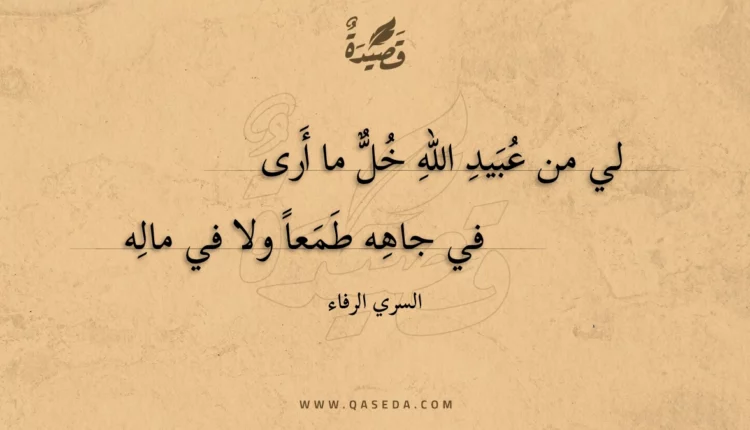 قَصِيدَةٌ
لي من عُبَيدِ اللهِ خُلٌّ ما أَرى
في جاهِه طَمَعاً ولا في مالِه
السري الرفاء
WWW.QASEDA.COM